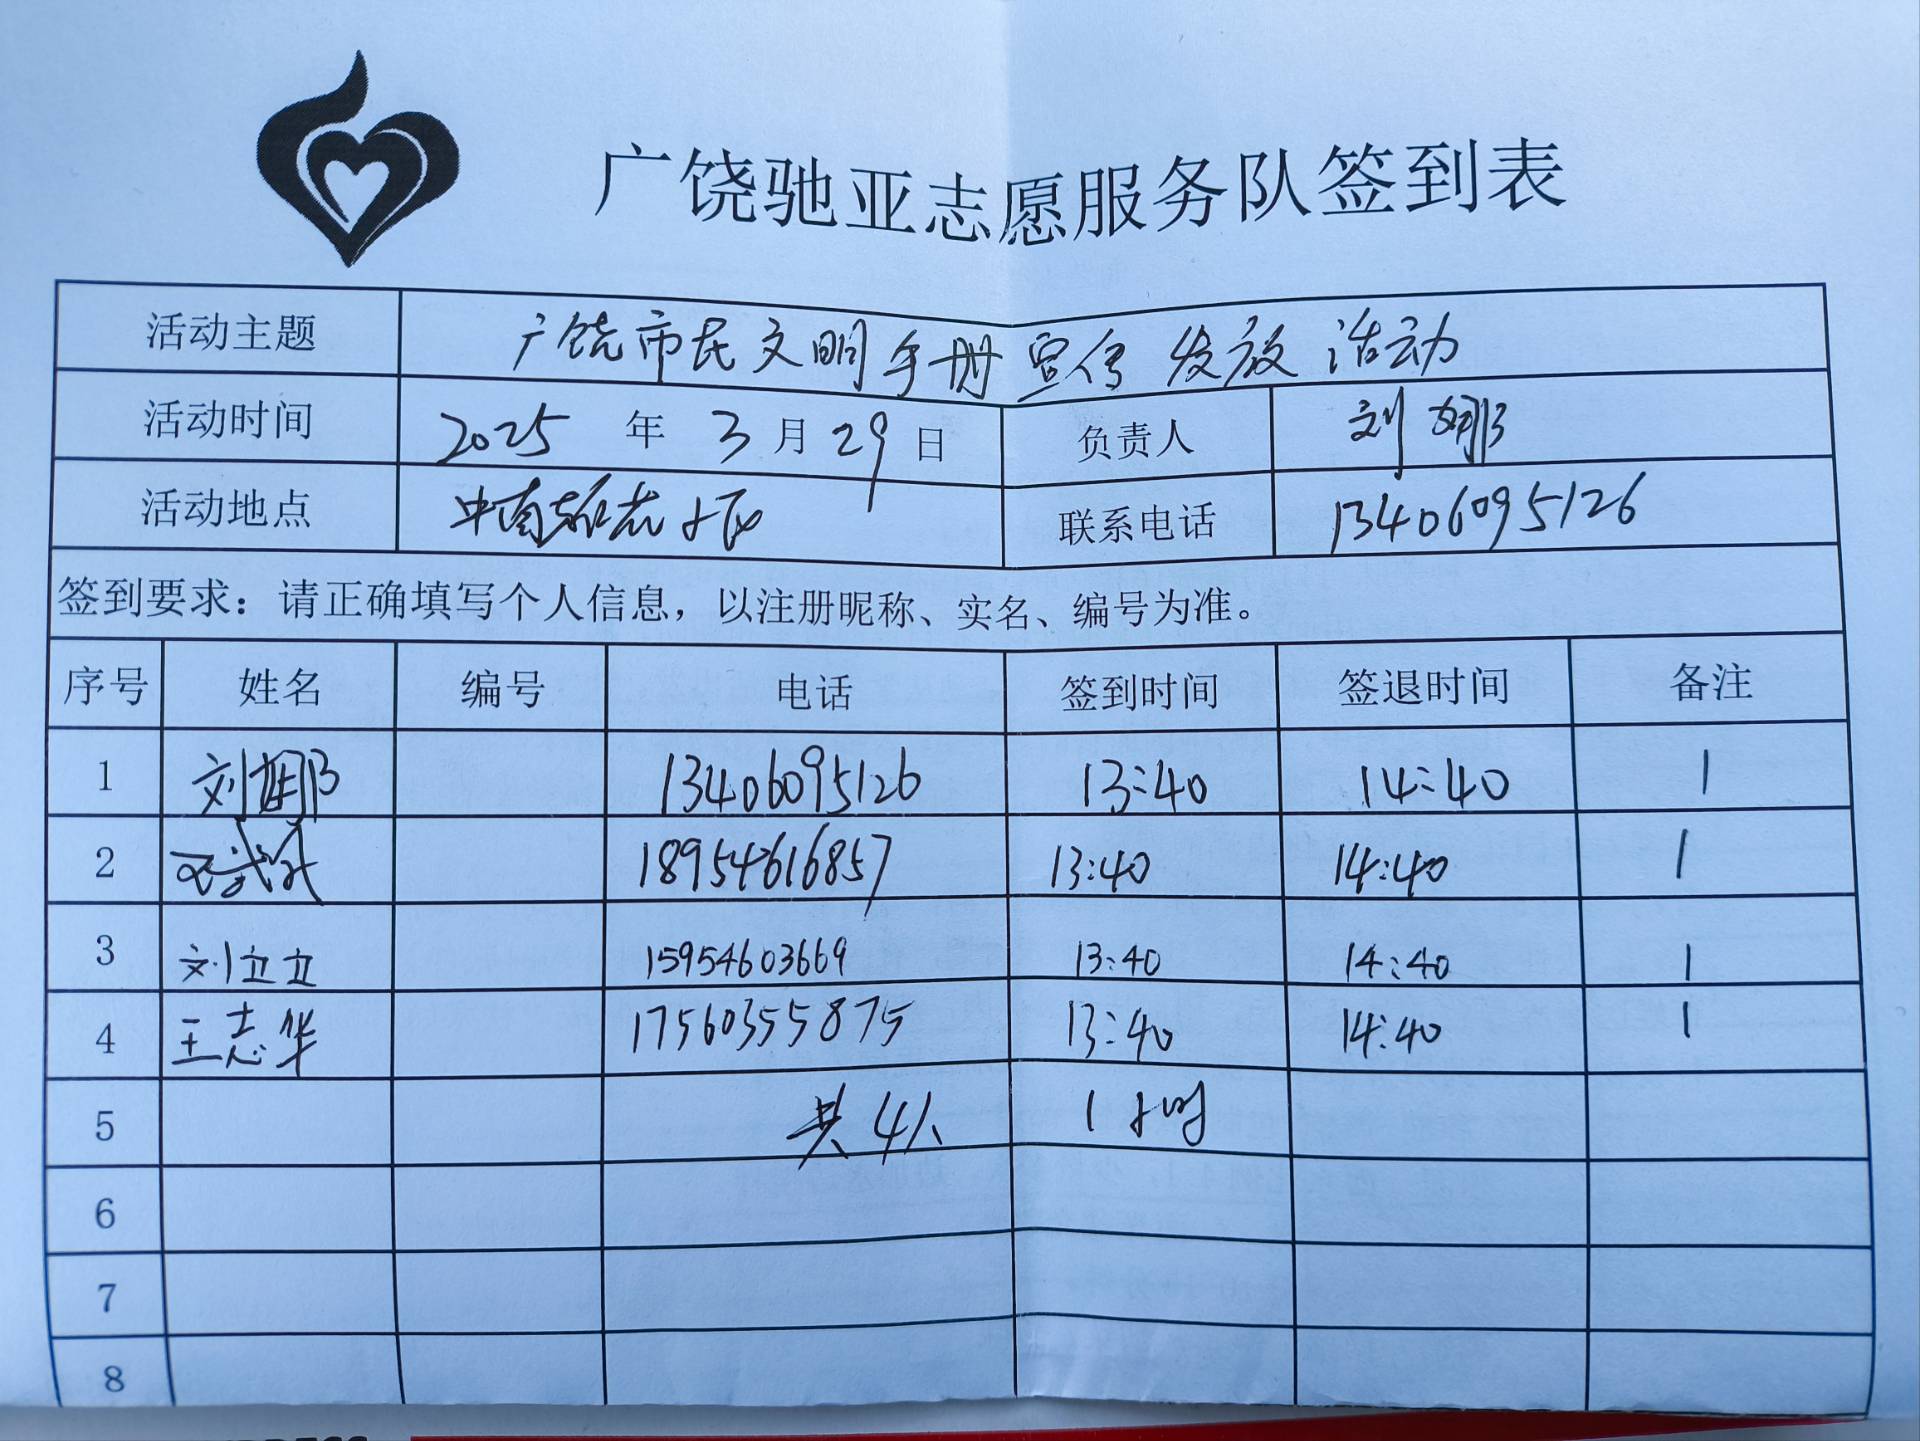 广饶驰亚志愿服务队签到表
活动主题 广饶市民文明手册宣传发放活动
活动时间 2025 年 3 月 29 日 负责人 刘娜
活动地点 中南 小区 联系电话 13406095126
签到要求：请正确填写个人信息，以注册昵称、实名、编号为准。
序号 姓名 编号 电话 签到时间 签退时间 备注
1 刘娜 13406095126 13:40 14:40 1
2 18954616857 13:40 14:40 1
3 刘立立 15954603669 13:40 14:40 1
4 王志华 17560355875 13:40 14:40 1
5 共4人 1小时
6
7
8